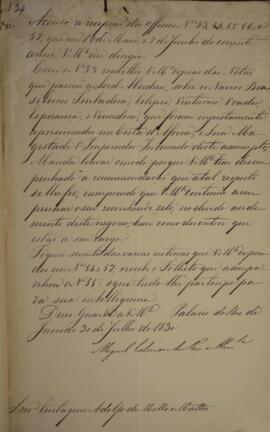 N.º 34
Accuso a recepção dos officios N.ºs 53, 54, 55, 56 e
57, que em de Maio, e 2 de Junho do corrente
anno, V. M.ce me dirigio.
Com o N.º 53 recebi V. M.ce copias das Notas
que passou a Lord Aberdeen, sobre os Navios Bra-
sileiros Tentadora, Veloz, Venturoso, Voador,
Esperança, e Vencedora, que forão injustamente
aprisionados na Costa d'Africa, e Sua Ma-
gestade O Imperador Inteirado deste assumpto,
Manda louvar o modo porque V. M.ce tem desem-
penhado as recommendações que a tal respeito
se lhe fez, cumprindo que V. M.ce continue a em-
penhar o seu zelo, no devido anda-
mento deste negocio, bem como dos outros que
estão a seu cargo.
Fiquei sciente das varias noticias que V. M.ce
nos N.ºs 54 e 57, e recebi o Folheto que acompa-
nhou o N.º 55: o que tudo lhe participo pa-
ra sua intelligencia.
Deos Guarde a V. M.ce Palacio do Rio de
Janeiro 30 de Julho de 1830
Miguel Calmon du Pin e Almeida
Snr. Eustaquio Adolfo de Mello e Mattos